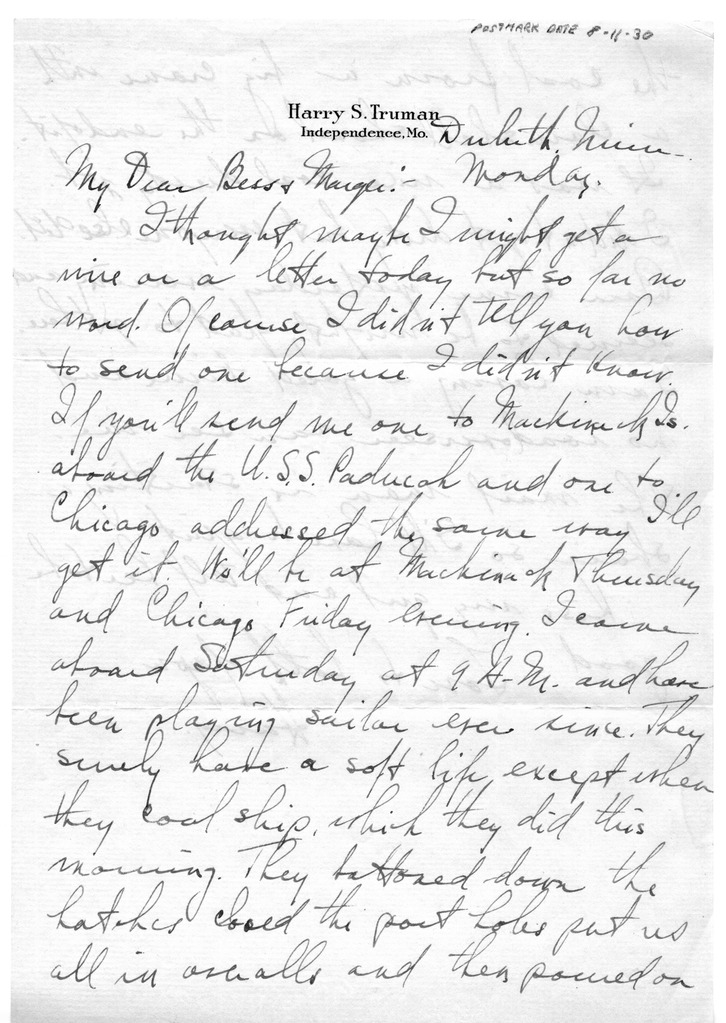 POSTMARK DATE 8-11-30
Harry S. Truman
Independence, Mo.
Duluth, Minn.
Monday.
My Dear Bess & Margie:-
I thought maybe I might get a
wire or a letter today but so far no
word. Of course I didn't tell you how
to send one because I didn't know.
If you'll send me one to Mackinack Is.
aboard the U.S.S. Paducah and one to
Chicago addressed the same way I'll
get it. We'll be at Mackinack Thursday
and Chicago Friday evening. I came
aboard Saturday at 9 A.M. and have
been playing sailor ever since. They
surely have a soft life except when
they coal ship, which they did this
morning. They battoned down the
hatches closed the port holes put us
all in overalls and then poured on